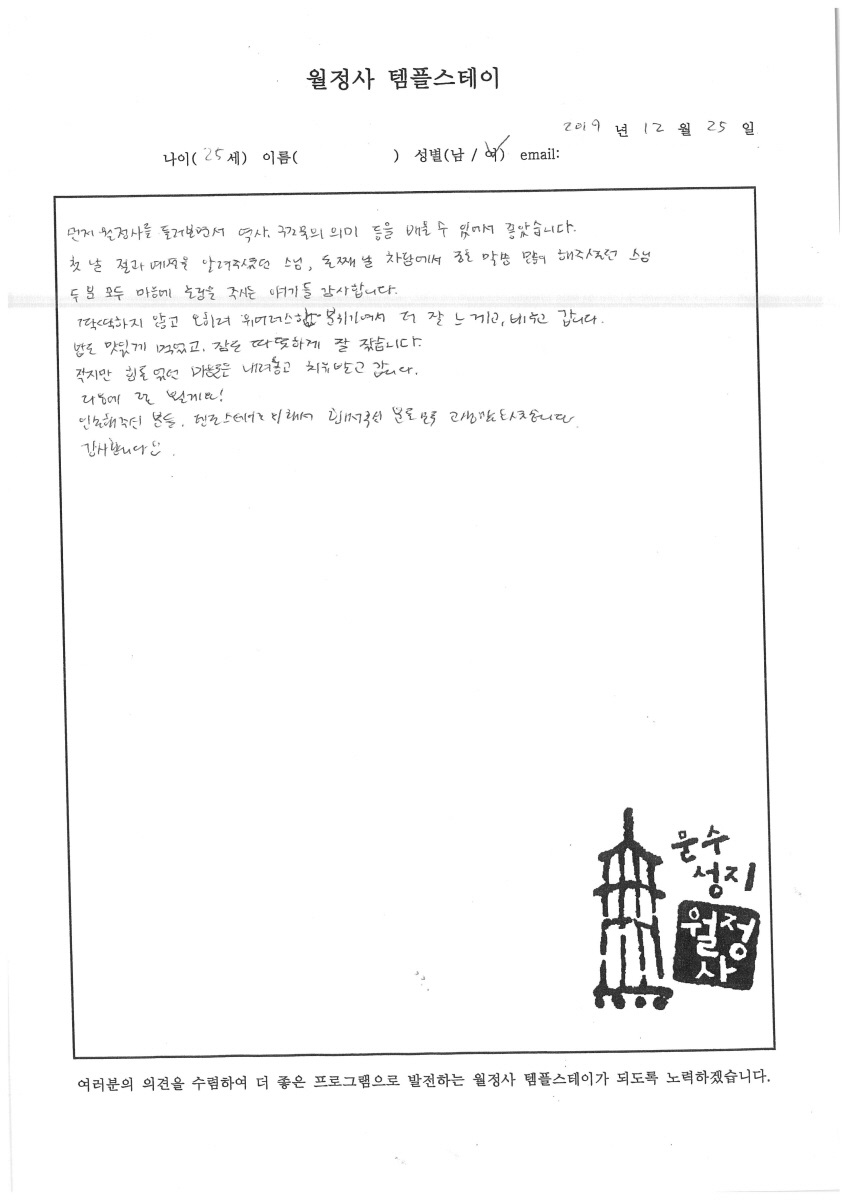 월정사 템플스테이
2019 년 12 월 25 일
나이( 25 세) 이름( ) 성별(남 / 여) email:
먼저 월정사를 둘러보면서 역사, 구조물의 의미 등을 배울 수 있어서 좋았습니다.
첫 날 절과 예절을 알려주셨던 스님, 둘째 날 차담에서 좋은 말씀 많이 해주시던 스님
두 분 모두 마음에 눈물을 주시는 얘기들 감사합니다.
딱딱하지 않고 오히려 분위기여서 더 잘 느끼고, 배우고 갑니다.
밥도 맛있게 먹었고, 잠도 따뜻하게 잘 잤습니다.
작지만 힘들었던 마음들은 내려놓고 치유받고 갑니다.
다음에 또 뵐게요!
인솔해주신 분들, 템플스테이를 위해서 분들 모두 고생 많으셨습니다.
감사합니다
문수
성지
월정
사
여러분의 의견을 수렴하여 더 좋은 프로그램으로 발전하는 월정사 템플스테이가 되도록 노력하겠습니다.